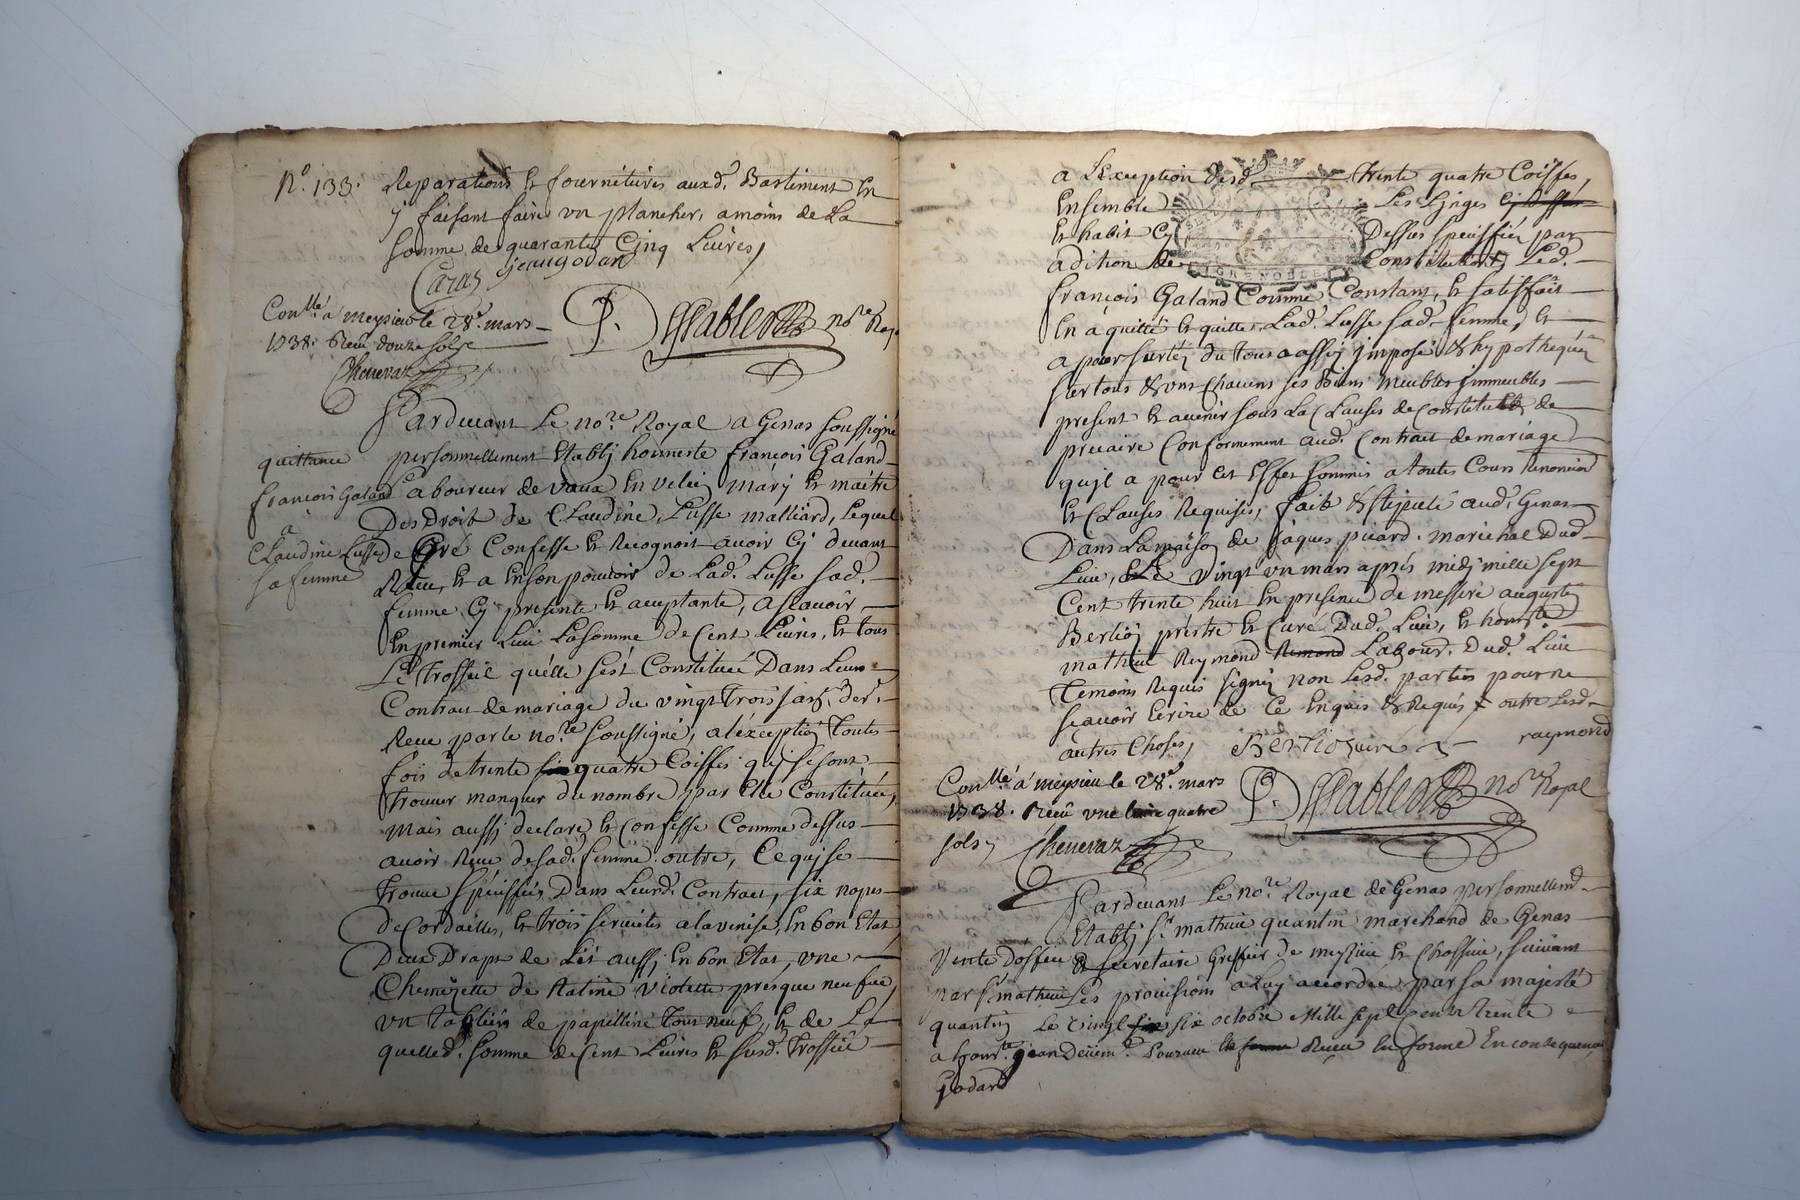 N.º 133. Reparations et fournitures auxd. Bastiment En
y faisant faire un plancher, amoins de La
Somme de quarante Cinq Livres,
Caras jean godard
Con.llé à meysieu le 28.e mars
1738. Reçu douze sols
Chenevaz
P. no.re Roy.
Pardevant Le no.re Royal a Genas soussigné
quittance
françois Galand
a
Claudine Lusse
sa femme
personnellement Etably honneste françois Galand
Laboureur de vaux En velin mary et maitre
Des Droits de Claudine Lusse malliard, Lequel
De Gré Confesse et Recognoit avoir Cy devant
Receu, et a Ensen pouvoir de Lad. Lusse sad.
femme Cy presente et aceptante, ascavoir
En premier Lieu La Somme de Cent Livres, et tous
Le Trosseil qu'elle ses't Constituée Dans Leur
Contract de mariage du vingt trois janv. der.
Receu par le no.re soussigné, a l'exception Toutes
fois de trente quatre Coiffes qui se sont
trouver manquer du nombre par Elle Constituée,
mais aussy declare, et Confesse Comme dessus
avoir Receu de sad. femme outre, Ce qui se
trouve speciffiés Dans Leurd. Contract, six napes
De Cordailles, et trois serviettes a la venise, En bon Etat,
Deux Draps de Lit aussy En bon Etat, une
Chemisette de Ratine violette presque neufve,
un tablier de papeline tout neuf, et de La
quelle d. Somme de Cent Livres et susd. Trossiel
a L'exception desd. trente quatre Coiffes,
Ensemble Les Linges
et habit Cy Dessus speciffiés par
adition de Constitution Led.
GRENOBLE
françois Galand Comme Constant, et satisfait
En a quitté et quitte Lad. Lusse sad. femme, et
a pour sureté du tous assis imposé et hypothequé
sur tous et uns Chacuns ses Biens meubles immeubles
present et avenir sous La Clauses de Constitut de
precaire Conformement aud. Contract de mariage
qu'il a pour cet Effet soumis a toutes Cours Renonciaõn
et Clauses Requises, fait et stipulé aud. Genas
Dans La maison de jaques picard marechal Dud.
Lieu, Le vingt un mars après midy mille sept
Cent trente huit En presence de messire augustin
Berlioz prestre et Curé Dud. Lieu, et honeste
mathieu Reymond Remond Labour. Dud. Lieu
Temoins Requis signez non Lesd. parties pour ne
sçavoir Ecrire de Ce Enquis et Requis outre Lesd.
autres Choses, Berlioz curé raymond
Con.llé à meysieu le 28.e mars
1738. Reçu une livre quatre
sols,
Chenevaz
P. no.re Royal
Pardevant Le no.re Royal de Genas personnellem.t
Etably S.r mathieu quantin marchand de Genas
Vente d'office
par S.r mathieu
quantin
a hon.te jean
Godard
et secretaire Greffier de meysieu et Chassieu, suivant
Les provisions a Luy accordée par sa majesté
Le vingt six octobre Mille sept Cents trente
Deüem.t Pourveu Receu En forme En consequence